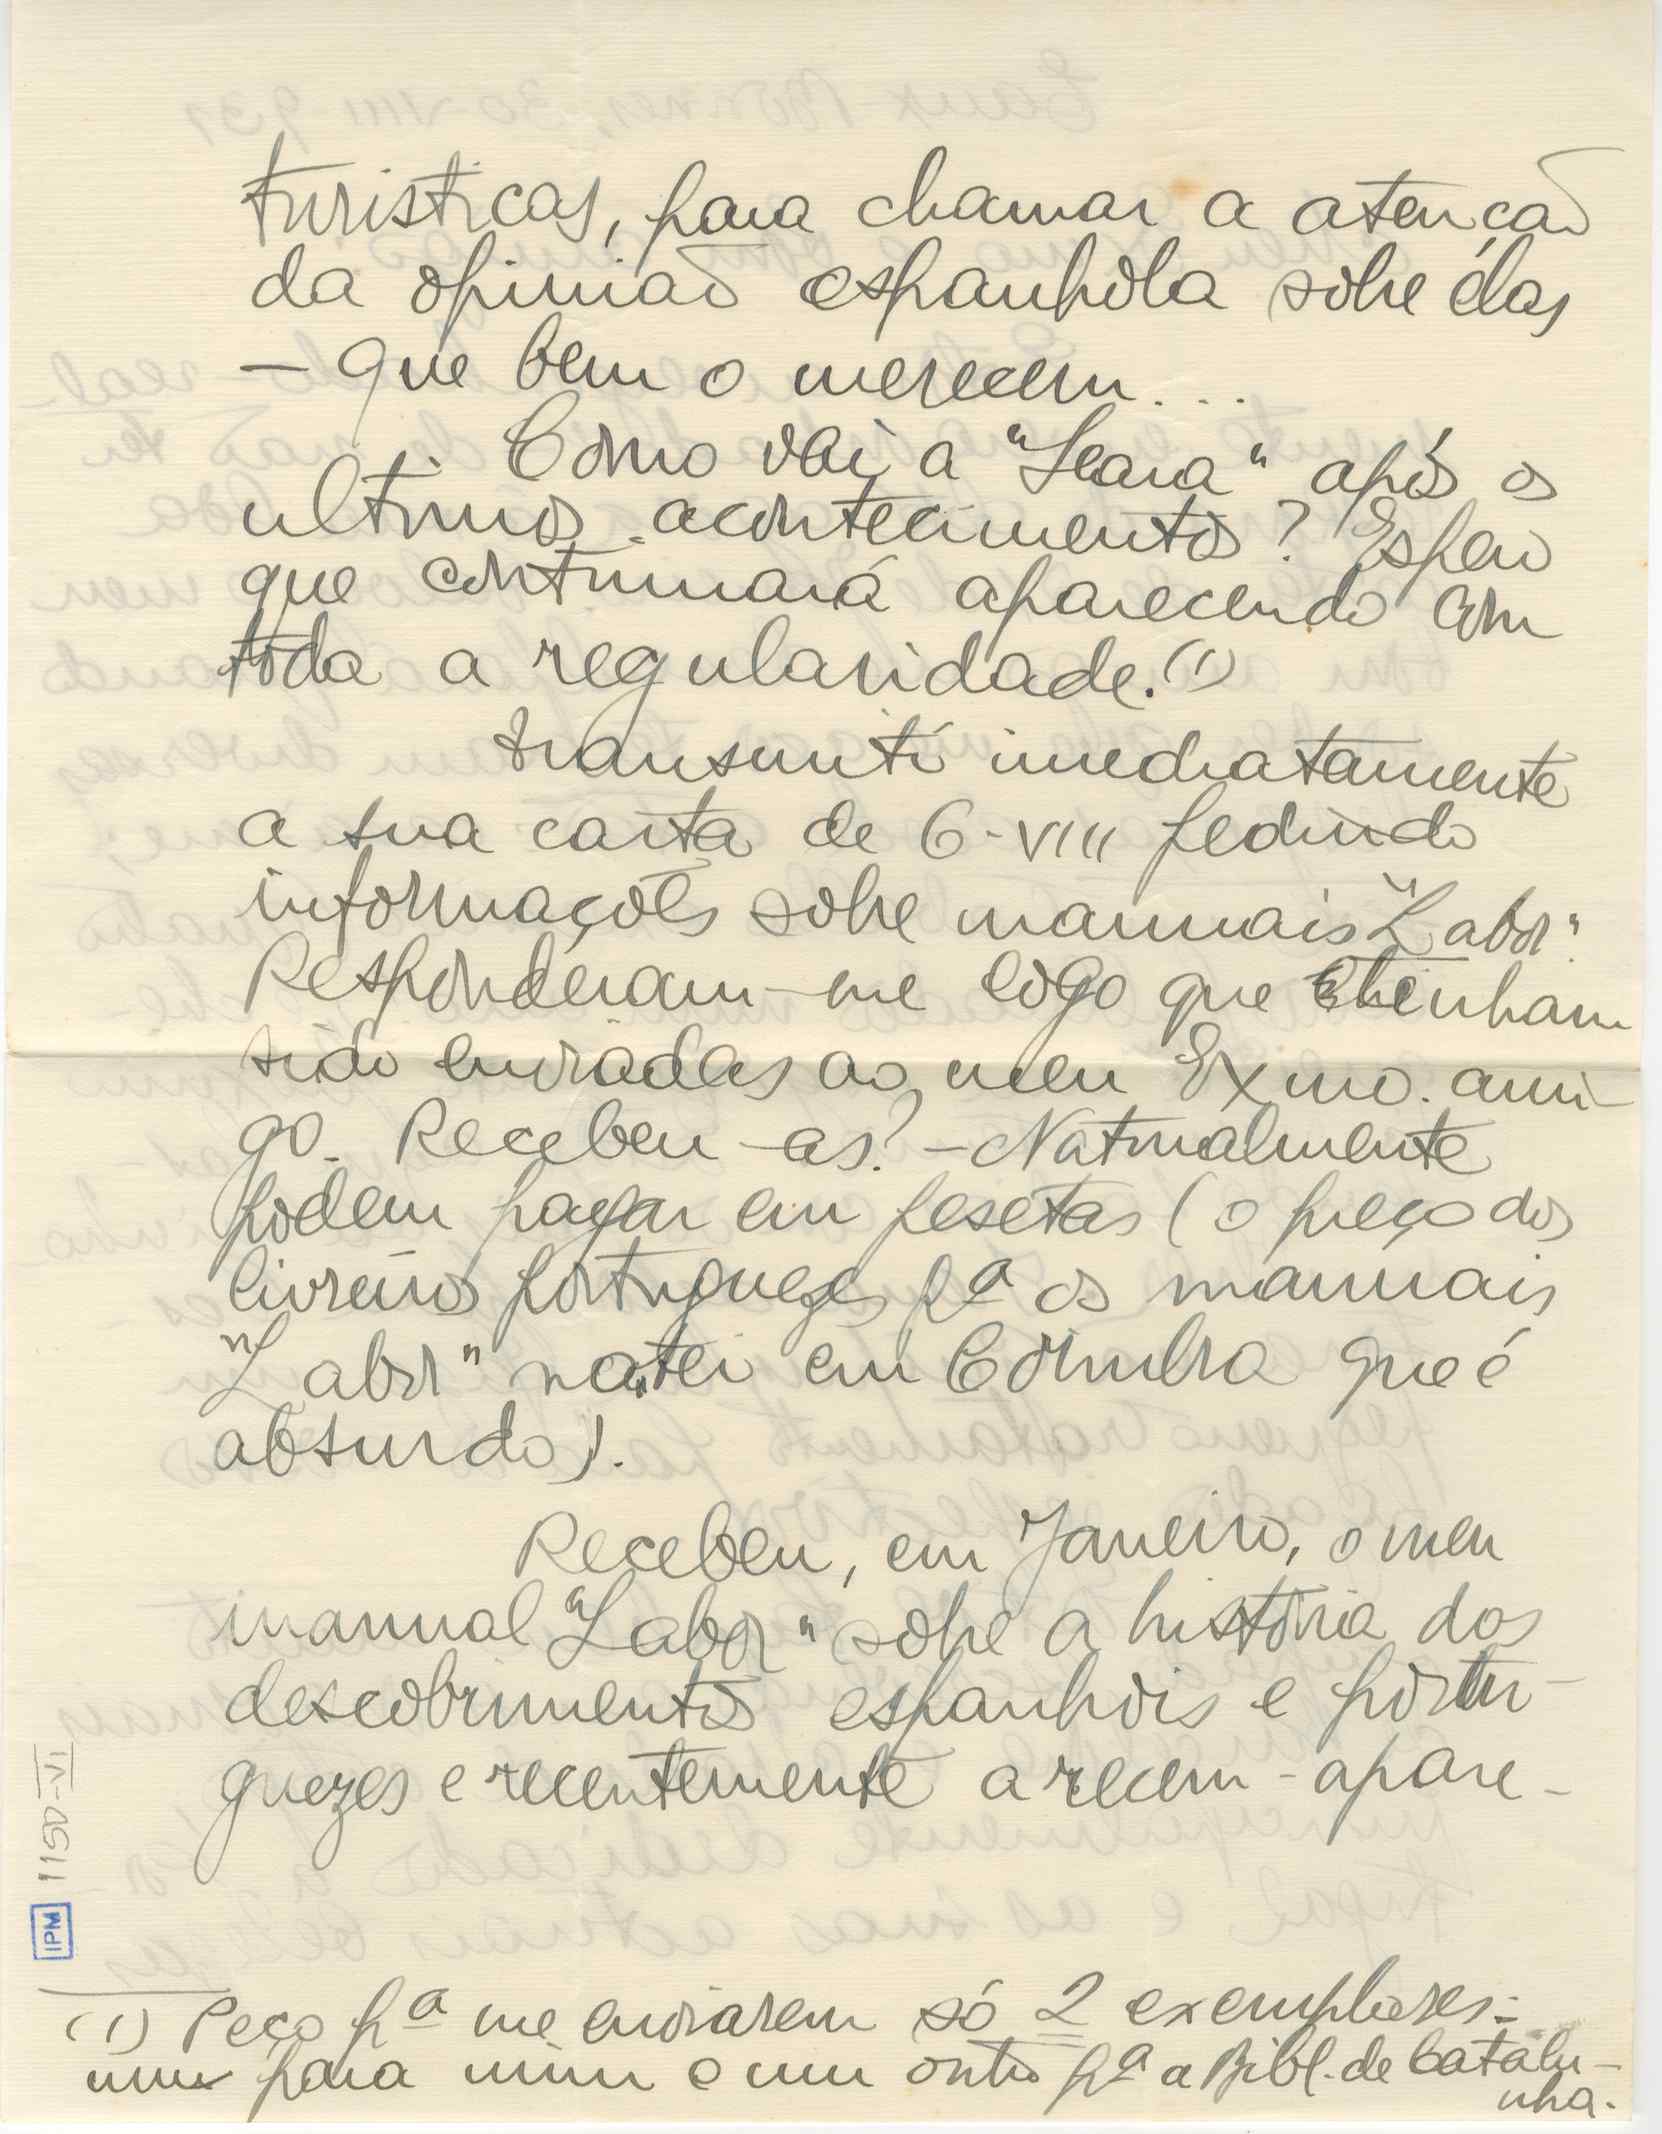 turisticas, para chamar a atenção
da opinião espanhola sobre élas
— que bem o merecem...
Como vai a "Seara" após os
ultimos acontecimentos? Espero
que continuará aparecendo com
toda a regularidade. (1)
Transmiti imediatamente
a sua carta de 6-VIII pedindo
informações sobre manuais "Labor".
Responderam-me logo que tinham
sido enviadas ao meu Exmo. ami-
go. Recebeu-as? - Naturalmente
podem pagar em pesetas (o preço dos
livreiros portuguezes pª os manuais
"Labor" notei em Coimbra que é
absurdo).
Recebeu, em Janeiro, o meu
manual "Labor" sobre a história dos
descobrimentos espanhois e portu-
guezes e recentemente a recem-apare-
(1) Peço pª me enviarem só 2 exemplares:
um para mim e um outro pª a Bibl. de Catalu-
nha.
1150-VI
IPM